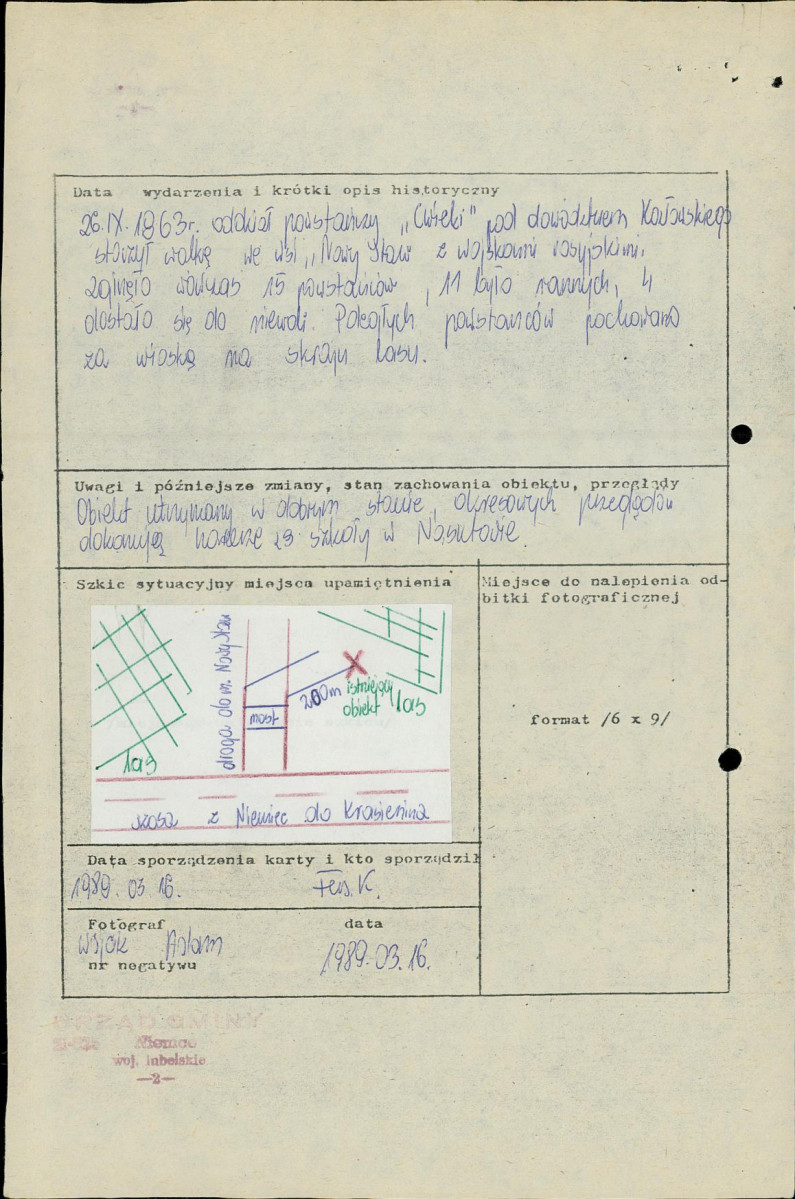 Data wydarzenia i krótki opis historyczny
26.IX.1863r. oddział powstańczy „Ćwieki" pod dowództwem Kozłowskiego
stoczył walkę we wsi „Nowy Staw z wojskami rosyjskimi.
zginęło wówczas 15 powstańców, 11 było rannych, 4
dostało się do niewoli. Poległych powstańców pochowano
za wioską na skraju lasu.
Uwagi i późniejsze zmiany, stan zachowania obiektu, przeglądy
Obiekt utrzymany w dobrym stanie, okresowych przeglądów
dokonują harcerze ze szkoły w Nasutowie.
Szkic sytuacyjny miejsca upamiętnienia
Miejsce do nalepienia od-
bitki fotograficznej
droga do m. Nowy Staw
most
200m
istniejący
obiekt
las
las
szosa z Niemiec do Krasienina
format /6 x 9/
Data sporządzenia karty i kto sporządził
1989.03.16. Feus K.
Fotograf data
Wójcik Adam 1989.03.16.
nr negatywu
URZĄD GMINY
Niemce
woj. lubelskie
—2—